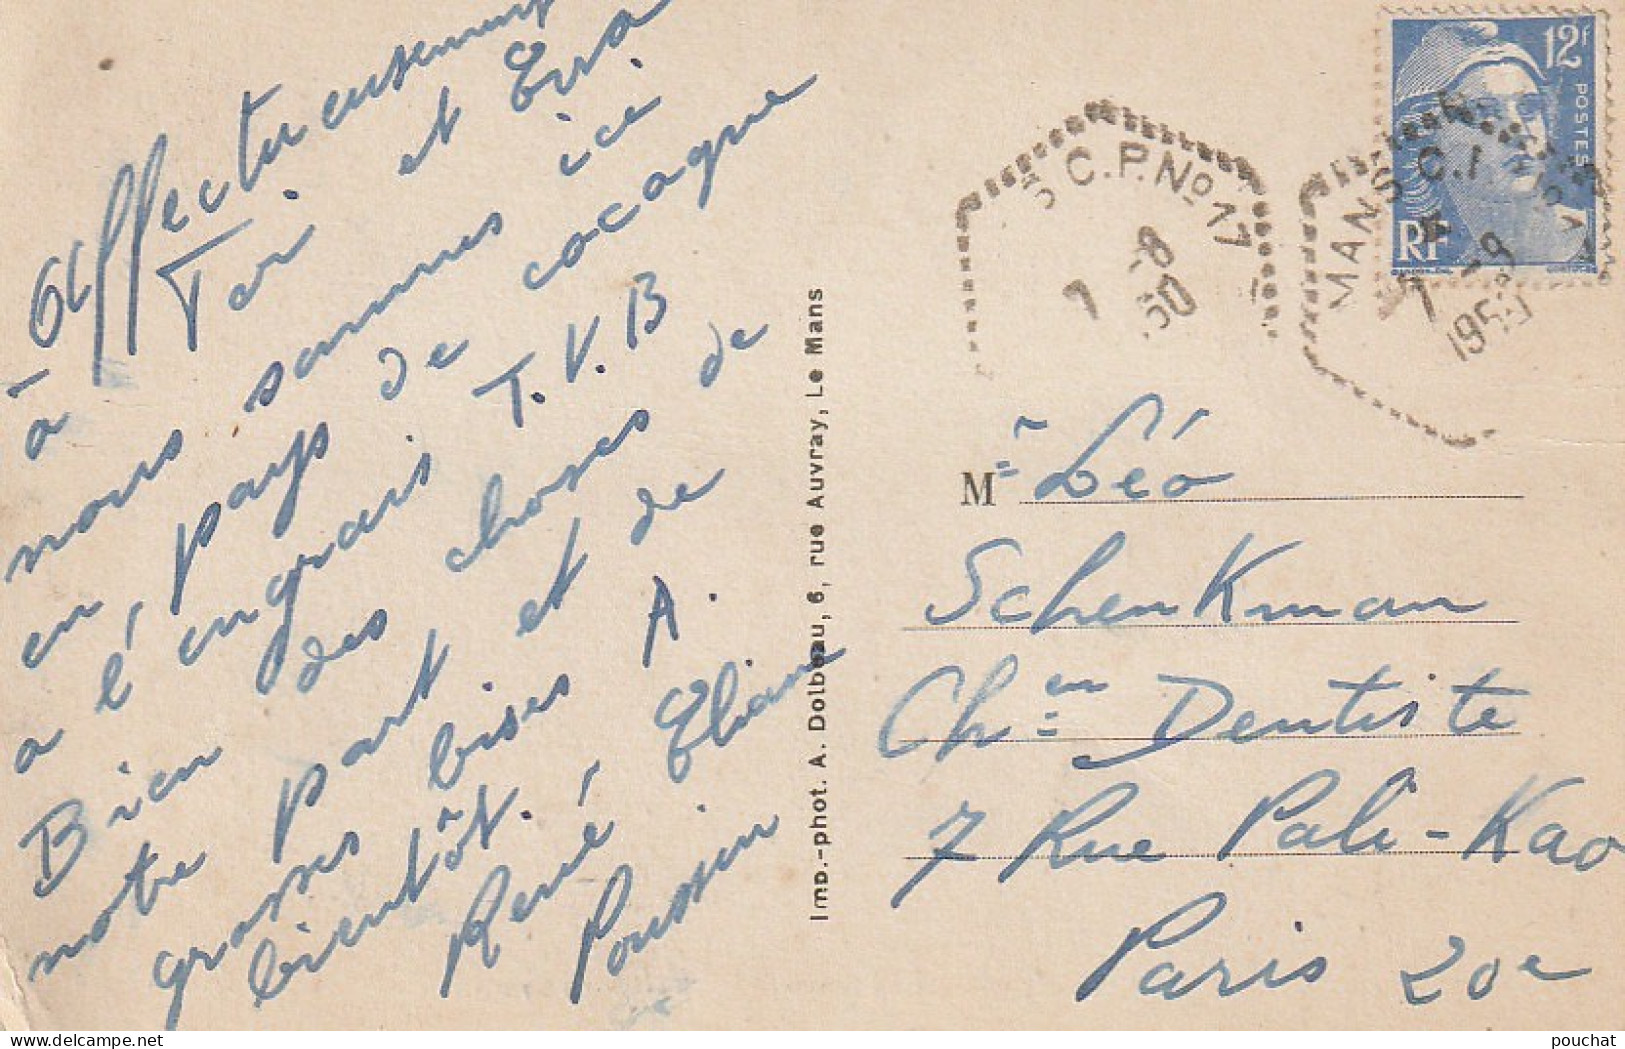 Affectueusement
à Toi et Erra
nous sommes ici
en, pays de cocagne
a l'engrais T.V.B
Bien des choses de
notre part et de
grosses bises A.
bientôt.
René Eliane
Poussin
Imp.-phot. A. Dolbeau, 6, rue Auvray, Le Mans
12F
POSTES
RF
S C.P.No 17
7 -8
50
MANS C.I.
7 -8
1950
Mr Léo
Schenkman
Chen Dentiste
7 Rue Pali-Kao
Paris 20e
pouchat